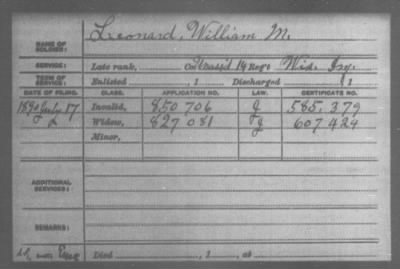 NAME OF SOLDIER: Leonard, William M.
SERVICE: Late rank, Co. 14 Reg't Wis. Inf.
TERM OF SERVICE: Enlisted , 1 Discharged , 1
DATE OF FILING. CLASS. APPLICATION NO. LAW. CERTIFICATE NO.
1890 July 17 Invalid, 850 706 J 585,379
Widow, 827 081 J 607424
Minor,
ADDITIONAL SERVICES:
REMARKS:
Died , 1 , at